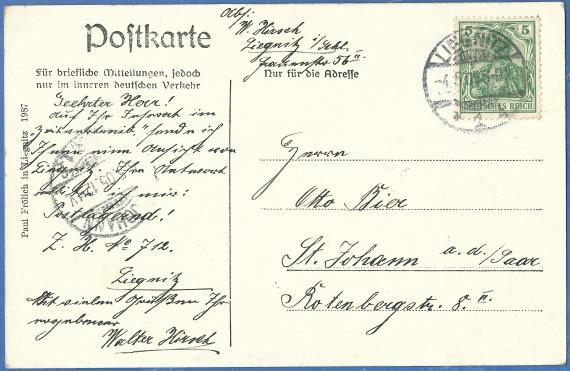 Postkarte
Abs:
W. Hirsch
Liegnitz i/Schl.
Frauenstr. 56 II
5 5
DEUTSCHES REICH
Für briefliche Mitteilungen, jedoch
nur im inneren deutschen Verkehr
Nur für die Adresse
Geehrter Herr!
Auf Ihr Inserat im
sende ich
Ihnen eine Ansicht von
Liegnitz. Ihre Antwort
mir:
Postlagernd!
Z. H. No 712.
Liegnitz
Mit vielen Grüßen Ihr
ergebener
Walter Hirsch
Herrn
Otto Bier
St. Johann a. d./Saar
Rotenbergstr. 8. II
Paul Frölich in Liegnitz 1987